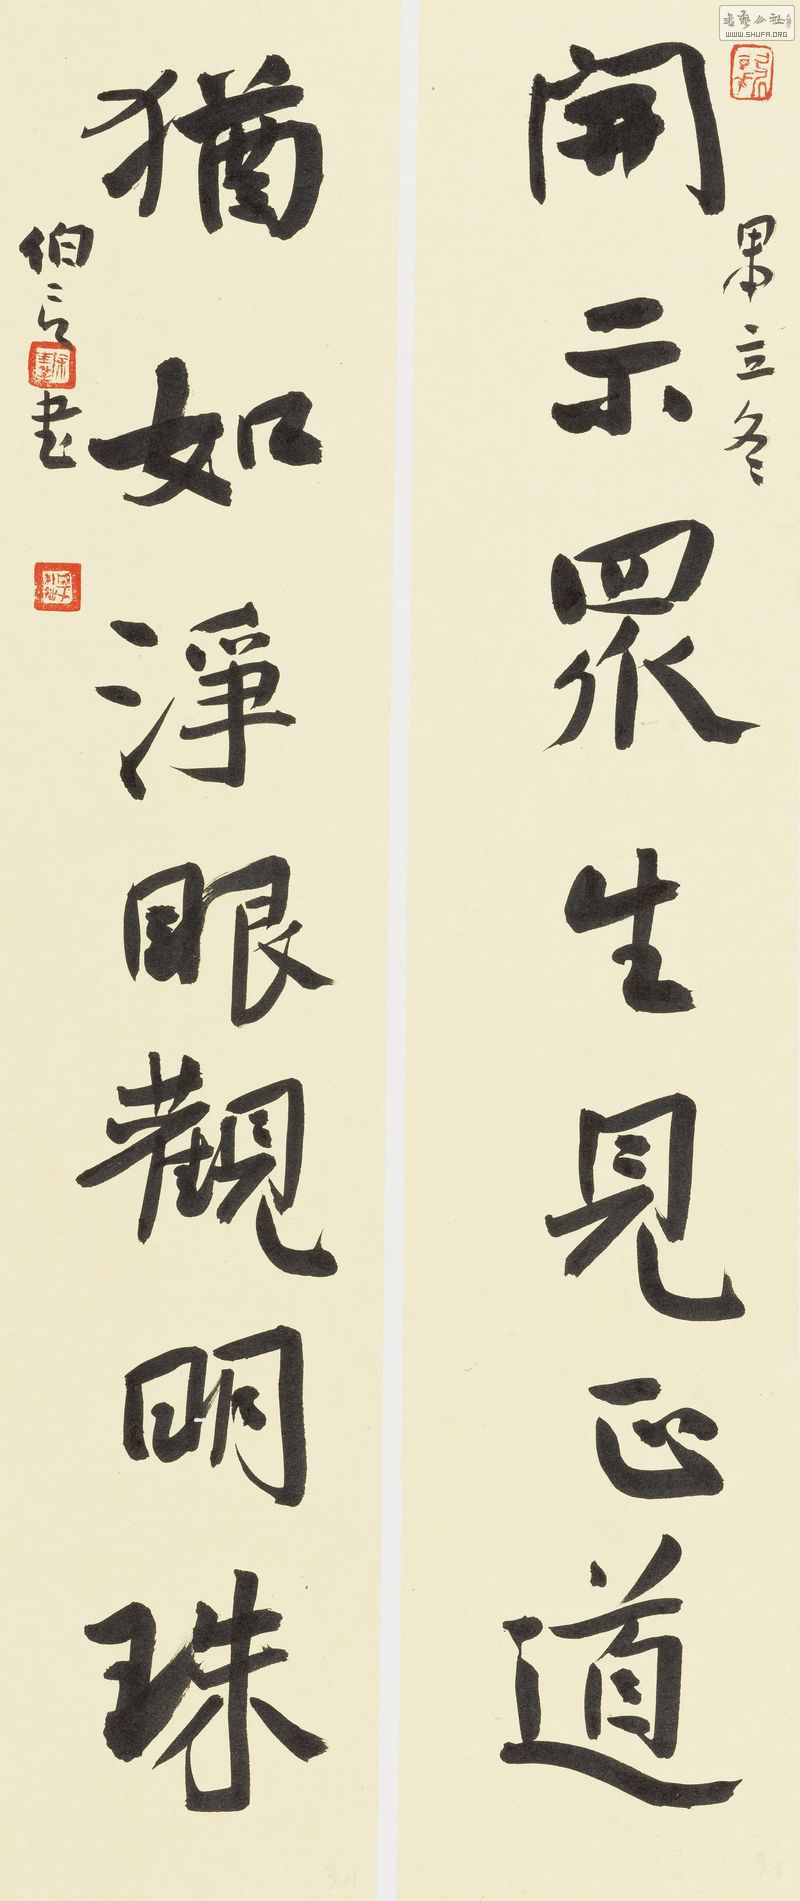 開示眾生見正道
立冬
猶如淨眼觀明珠
伯言書
書艺公社
WWW.SHUFA.ORG